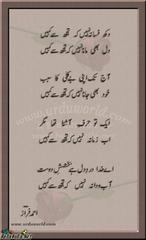 دکھ فسانہ نہیں کہ تجھ سے کہیں
دل بھی مانا نہیں کہ تجھ سے کہیں
آج تک اپنی بے کلی کا سبب
خود بھی جانا نہیں کہ تجھ سے کہیں
ایک تو حرف آشنا تھا مگر
اب زمانہ نہیں کہ تجھ سے کہیں
اے خدا درد دل ہے بخشش دوست
آب و دانہ نہیں کہ تجھ سے کہیں
احمد فراز
www.urduworld.com